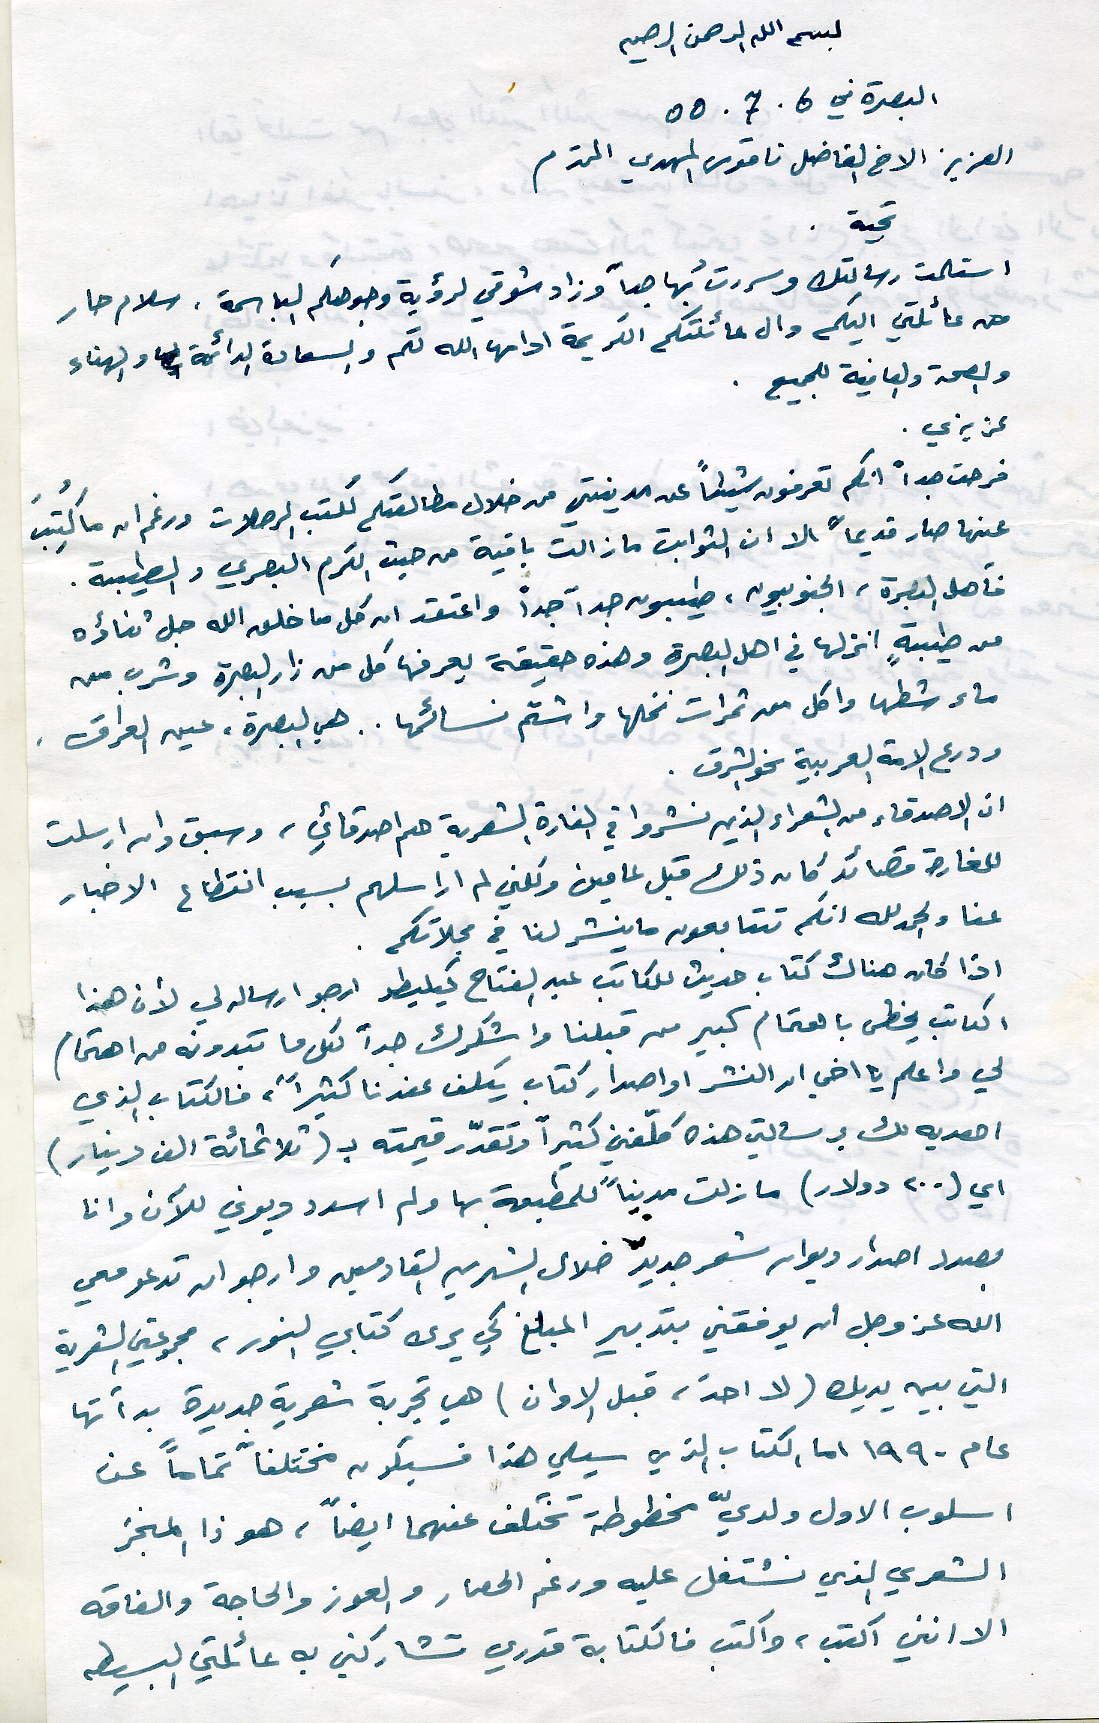 بسم الله الرحمن الرحيم
البصرة في 6 . 7 . 00
العزيز الاخ الفاضل ناقوس المهدي المحترم
تحية .
استلمت رسالتك وسررت بها جداً وزاد شوقي لرؤية وجوهكم الباسمة ، سلام حار
من عائلتي اليكم وال عائلتكم الكريمة ادامها الله لكم والسعادة الدائمة والهناء
والصحة والعافية للجميع .
عزيزي .
فرحت جداً انكم تعرفون شيئاً عن مدينتي من خلال مطالعتكم لكتب الرحلات ورغم ان ما كُتِبَ
عنها صار قديماً الا ان الثوابت ما زالت باقية من حيث الكرم البصري والطيبة .
فأهل البصرة ، الجنوبيون ، طيبون جداً جداً واعتقد ان كل ما خلق الله جل ثناؤه
من طيبةٍ انزلها في اهل البصرة وهذه حقيقة يعرفها كل من زار البصرة وشرب من
ماء شطها واكل من ثمرات نخلها واشتم نسائمها .. هي البصرة ، عين العراق ،
ودرع الامة العربية نحو الشرق .
ان الاصدقاء من الشعراء الذين نشروا في الغارة الشعرية هم اصدقائي ، وسبق وان ارسلت
للغارة قصائد كان ذلك قبل عامين ولكني لم اراسلهم بسبب انقطاع الاخبار
عنا والحمد لله انكم تتابعون ما ينشر لنا في مجلاتكم .
اذا كان هناك كتاب حديث للكاتب عبد الفتاح كيليطو ارجو ارساله لي لأن هذا
الكاتب يحظى باهتمام كبير من قبلنا واشكرك جداً لكل ما تبدونه من اهتمام
لي واعلم يا اخي ان النشر او اصدار كتاب يكلف عندنا كثيراً ، فالكتاب الذي
اهديه لك برسالتي هذه كلّفني كثيراً وتقدّر قيمته بـ ( ثلاثمائة الف دينار )
اي ( ٢٠٠ دولار ) ما زلت مديناً للمطبعة بها ولم اسدد ديوني للآن وانا
بصدد اصدار ديوان شعر جديد خلال الشهرين القادمين وارجو ان تدعو معي
الله عز وجل أن يوفقني بتدبير المبلغ كي يرى كتابي النور ، مجموعتي الشعرية
التي بين يديك ( لا احد ، قبل الاوان ) هي تجربة شعرية جديدة بدأتها
عام ١٩٩٠ اما الكتاب الذي سيلي هذا فسيكون مختلفاً تماماً عن
اسلوب الاول ولديّ مخطوطة تختلف عنهما ايضاً ، هو ذا المنجز
الشعري الذي نشتغل عليه ورغم الحصار والعوز والحاجة والفاقه
الا انني اكتب ، واكتب فالكتابة قدري تشاركني به عائلتي البسيطه